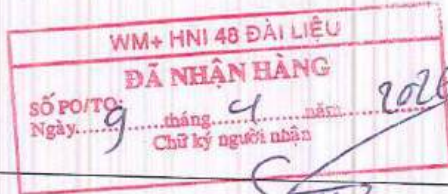 WM+ HNI 48 ĐÀI LIỆU
ĐÃ NHẬN HÀNG
SỐ PO/TO:
Ngày.....9.....tháng.....4.....năm.....2026
Chữ ký người nhận